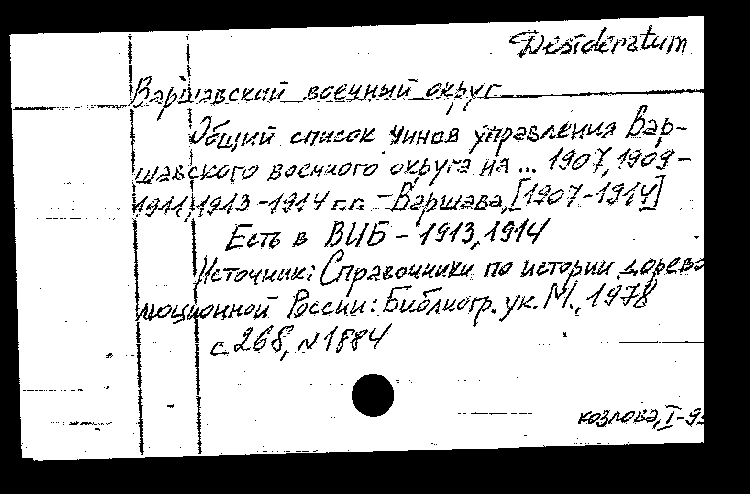 Desideratum
Варшавский военный округ
Общий список чинов управления Вар-
шавского военного округа на ... 1907, 1909-
1911, 1913-1914 г.г. - Варшава, [1907-1914]
Есть в ВИБ - 1913, 1914
Источник: Справочники по истории дорево
люционной России: Библиогр. ук. М., 1978
с. 268, N 1884
козлова, I-95